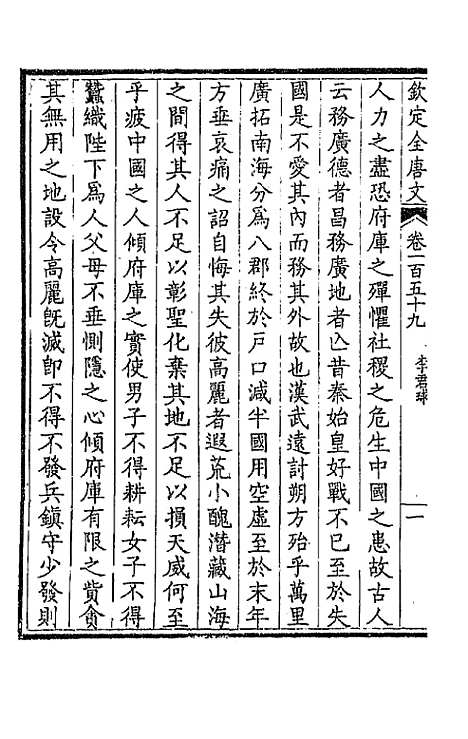 欽定全唐文 卷一百五十九 李君球 一
人力之盡恐府庫之殫懼社稷之危生中國之患故古人
云務廣德者昌務廣地者亡昔秦始皇好戰不已至於失
國是不愛其內而務其外故也漢武遠討朔方殆乎萬里
廣拓南海分爲八郡終於戸口減半國用空虛至於末年
方垂哀痛之詔自悔其失彼高麗者遐荒小醜潛藏山海
之間得其人不足以彰聖化棄其地不足以損天威何至
乎疲中國之人傾府庫之實使男子不得耕耘女子不得
蠶織陛下爲人父母不垂惻隱之心傾府庫有限之貲貪
其無用之地設令高麗旣滅卽不得不發兵鎭守少發則